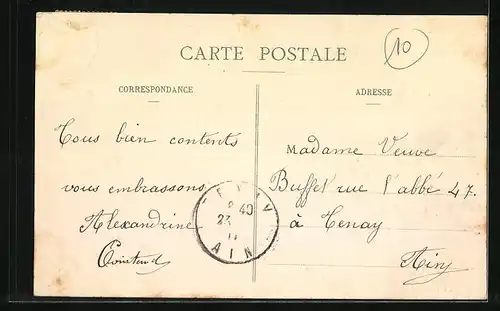 10
CARTE POSTALE
CORRESPONDANCE
ADRESSE
Tous bien contents
vous embrassons
Alexandrine
Madame Veuve
Buffet rue l'abbé 47.
à Tenay
Ain
40
23
AIN